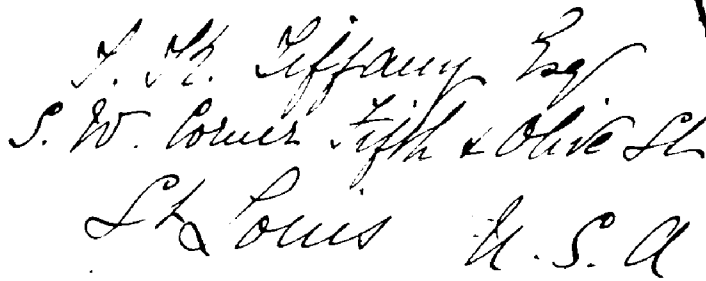 J. K. Tiffany Esq
S. W. Corner Fifth & Olive St
St Louis U. S. A